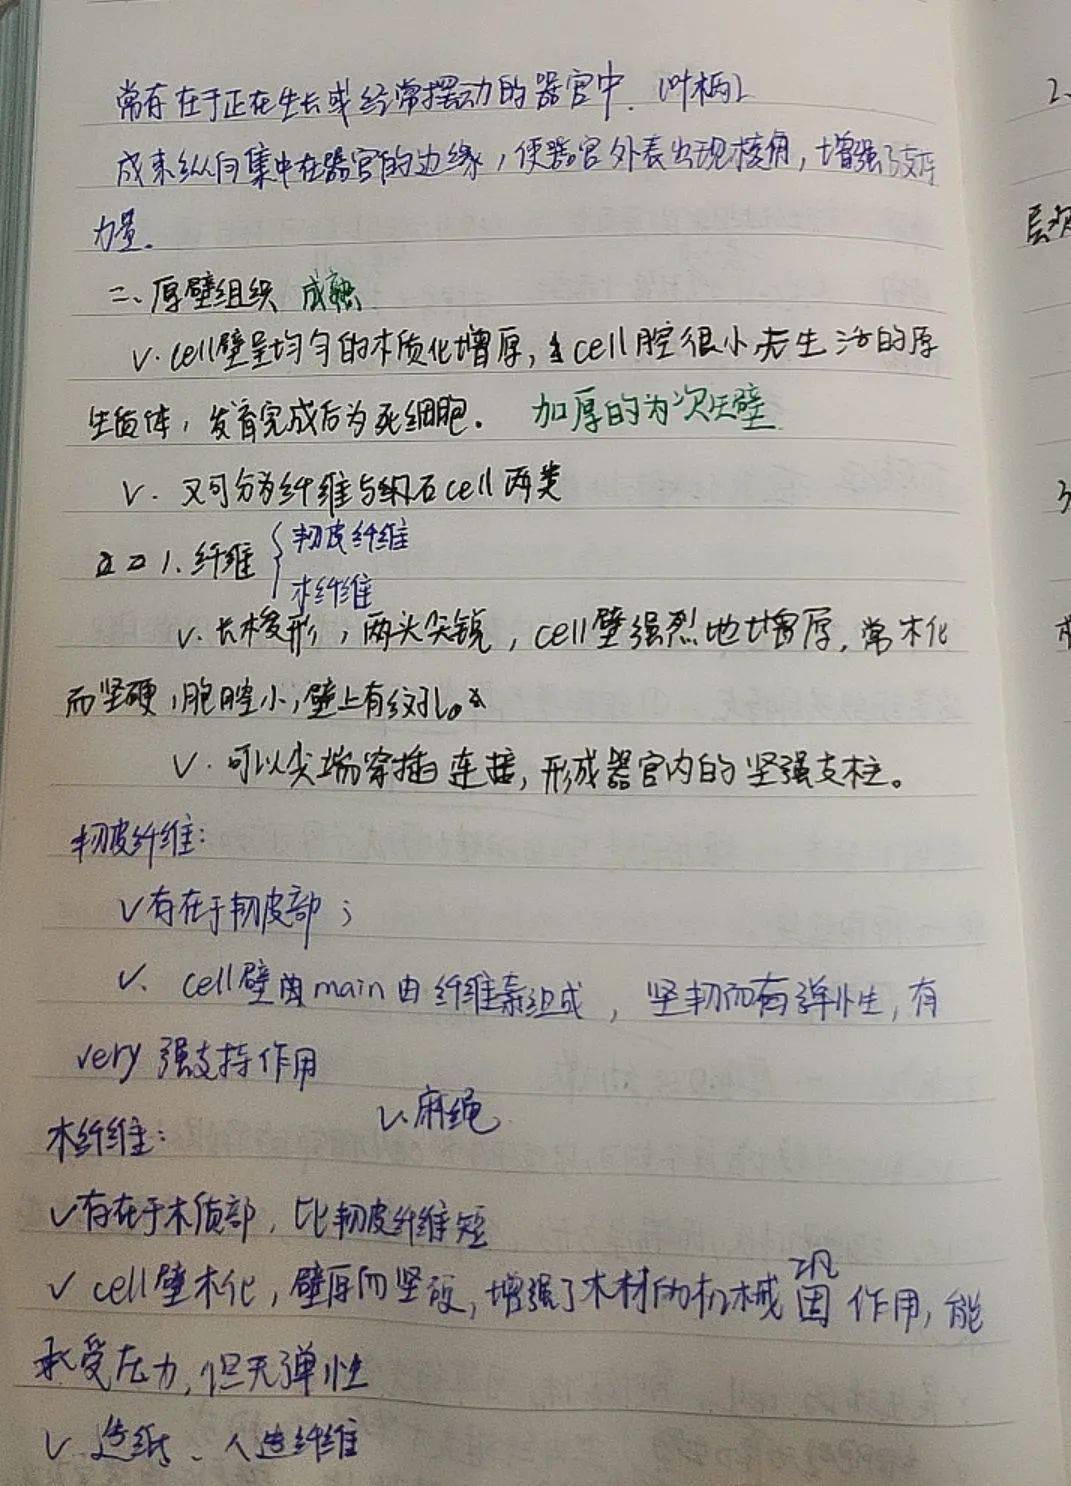 常存在于正在生长或经常摆动的器官中.(叶柄)
成束纵向集中在器官的边缘,使器官外表出现棱角,增强了支持
力量.
二、厚壁组织 成熟
V. cell壁呈均匀的木质化增厚, cell腔很小,无生活的原
生质体,发育完成后为死细胞。 加厚的为次生壁
V. 又可分为纤维与石cell两类
1.纤维 { 韧皮纤维
木纤维
V. 长梭形,两头尖锐,cell壁强烈地增厚,常木化
而坚硬,胞腔小,壁上有纹孔。
V. 可以尖端穿插连接,形成器官内的坚强支柱。
韧皮纤维:
V 存在于韧皮部;
V. cell壁 main由纤维素组成, 坚韧而有弹性,有
very 强支持作用
V.麻绳
木纤维:
V 存在于木质部,比韧皮纤维短
V cell壁木化,壁厚而坚硬,增强了木材的机械巩固作用,能
承受压力,但无弹性
V. 造纸、人造纤维
层次